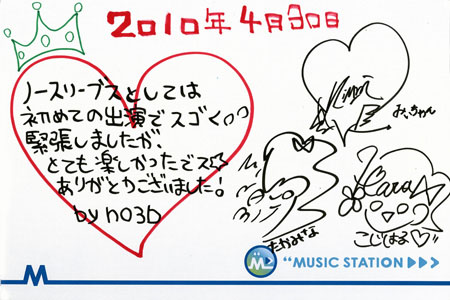 2010年4月30日
ノースリーブスとしては
初めての出演でスゴく
緊張しましたが、
とても楽しかったです
ありがとうございました！
by no3b
みぃちゃん
たかみな
Haruna
こじはる♡
M
"MUSIC STATION
M